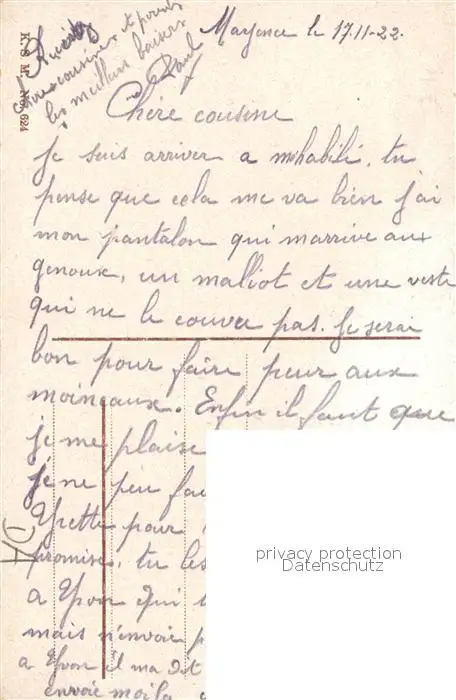 Mayence le 17.11-22.
K. S. M. No. 624
cousine et pour
les meilleurs baisers
Paul
Chère cousine
je suis arriver a mhabili. tu
pense que cela me va bien j'ai
mon pantalon qui marrive aux
genoux, un malliot et une veste
qui ne le couvre pas. je serai
bon pour faire peur aux
moineaux. Enfin il faut que
je me plaise
je ne peu
Yvette pour
promise, tu les
a Yvon qui
mais n'envoie
a Yvon il ma dit
envoie moi la
privacy protection
Datenschutz